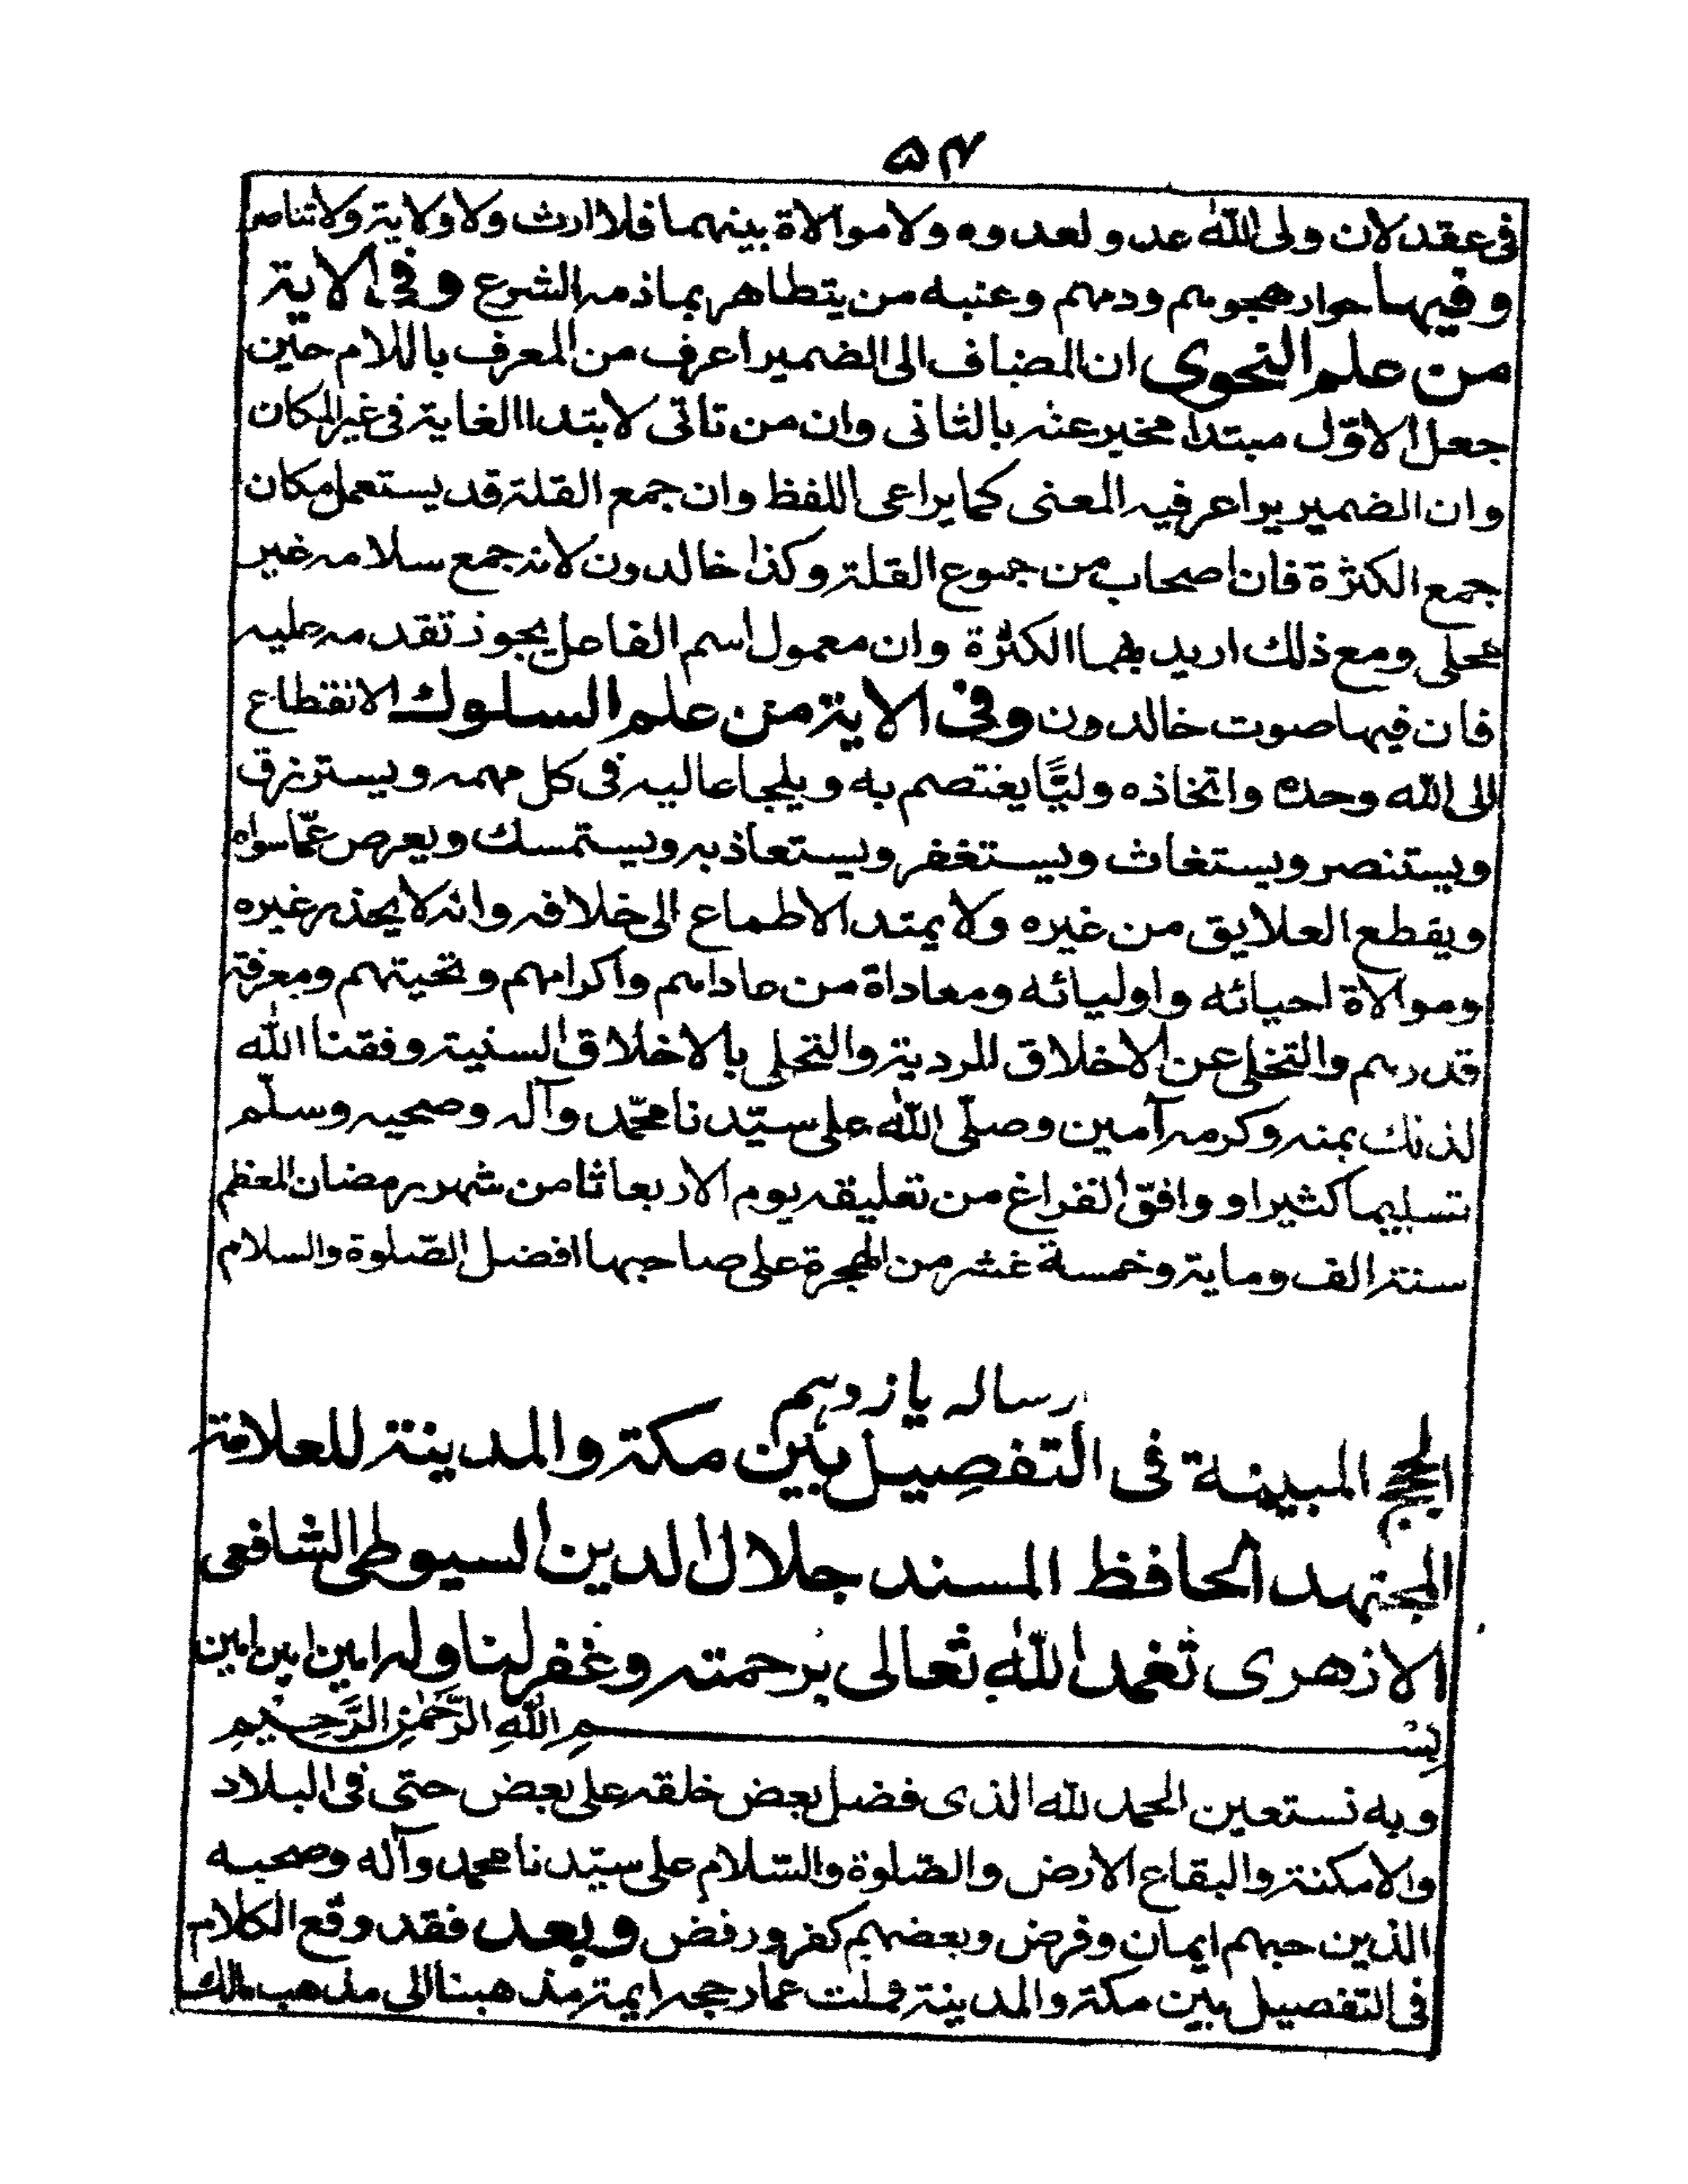 ۵۴
فى عقد لان ولى الله عدو لعدوه ولا موالاة بينهما فلا ارث ولا ولاية ولا تناصر
و فيها جوار هجوهم وذمهم وعتبه من يتظاهر بما ذمه الشرع وفى الاية
من علم النحوى ان المضاف الى الضمير اعرف من المعرف باللام حين
جعل الاول مبتدأ مخبر عنه بالثانى وان من تاتى لابتدا الغاية فى غير المكان
وان الضمير يراعى فيه المعنى كما يراعى اللفظ وان جمع القلة قد يستعمل مكان
جمع الكثرة فان اصحاب من جموع القلة وكذا خالدون لانه جمع سلامه غير
محلى ومع ذلك اريد بهما الكثرة وان معمول اسم الفاعل يجوز تقدمه عليه
فان فيها صوت خالدون وفى الاية من علم السلوك الانقطاع
الى الله وحده واتخاذه وليًّا يعتصم به ويلجا عاليه فى كل مهمه ويسترزق
ويستنصر ويستغاث ويستغفر ويستعاذ به ويستمسك ويعرض عمّا سواه
ويقطع العلايق من غيره ولا يمتد الاطماع الى خلافه وانه لا يحذر غيره
وموالاة احبائه واوليائه ومعاداة من عاداهم واكرامهم وتحيتهم ومعرفة
قدرهم والتخلى عن الاخلاق للردية والتحلى بالاخلاق السنية وفقنا الله
لذلك بمنه وكرمه آمين وصلّى الله على سيّدنا محمّد وآله وصحبه وسلّم
تسليما كثيرا و وافق الفراغ من تعليقه يوم الاربعا ثامن شهر رمضان المعظم
سنة الف وماية وخمسة عشر من الهجرة على صاحبها افضل الصّلوة والسلام
رساله يازدهم
الحجج المبينة فى التفصيل بين مكة والمدينة للعلامة
المجتهد الحافظ المسند جلال الدين السيوطى الشافعى
الازهرى تغمد الله تعالى برحمته وغفر لنا وله امين امين امين
بسم اللهِ الرَّحمٰنِ الرَّحِيمِ
وبه نستعين الحمد لله الذى فضل بعض خلقه على بعض حتى فى البلاد
والامكنة والبقاع الارض والصّلوة والسّلام على سيّدنا محمد وآله وصحبه
الذين حبهم ايمان وفرض وبعضهم كفر ورفض وبعد فقد وقع الكلام
فى التفصيل بين مكة والمدينة فملت عما رجحه ايمة مذهبنا الى مذهب مالك